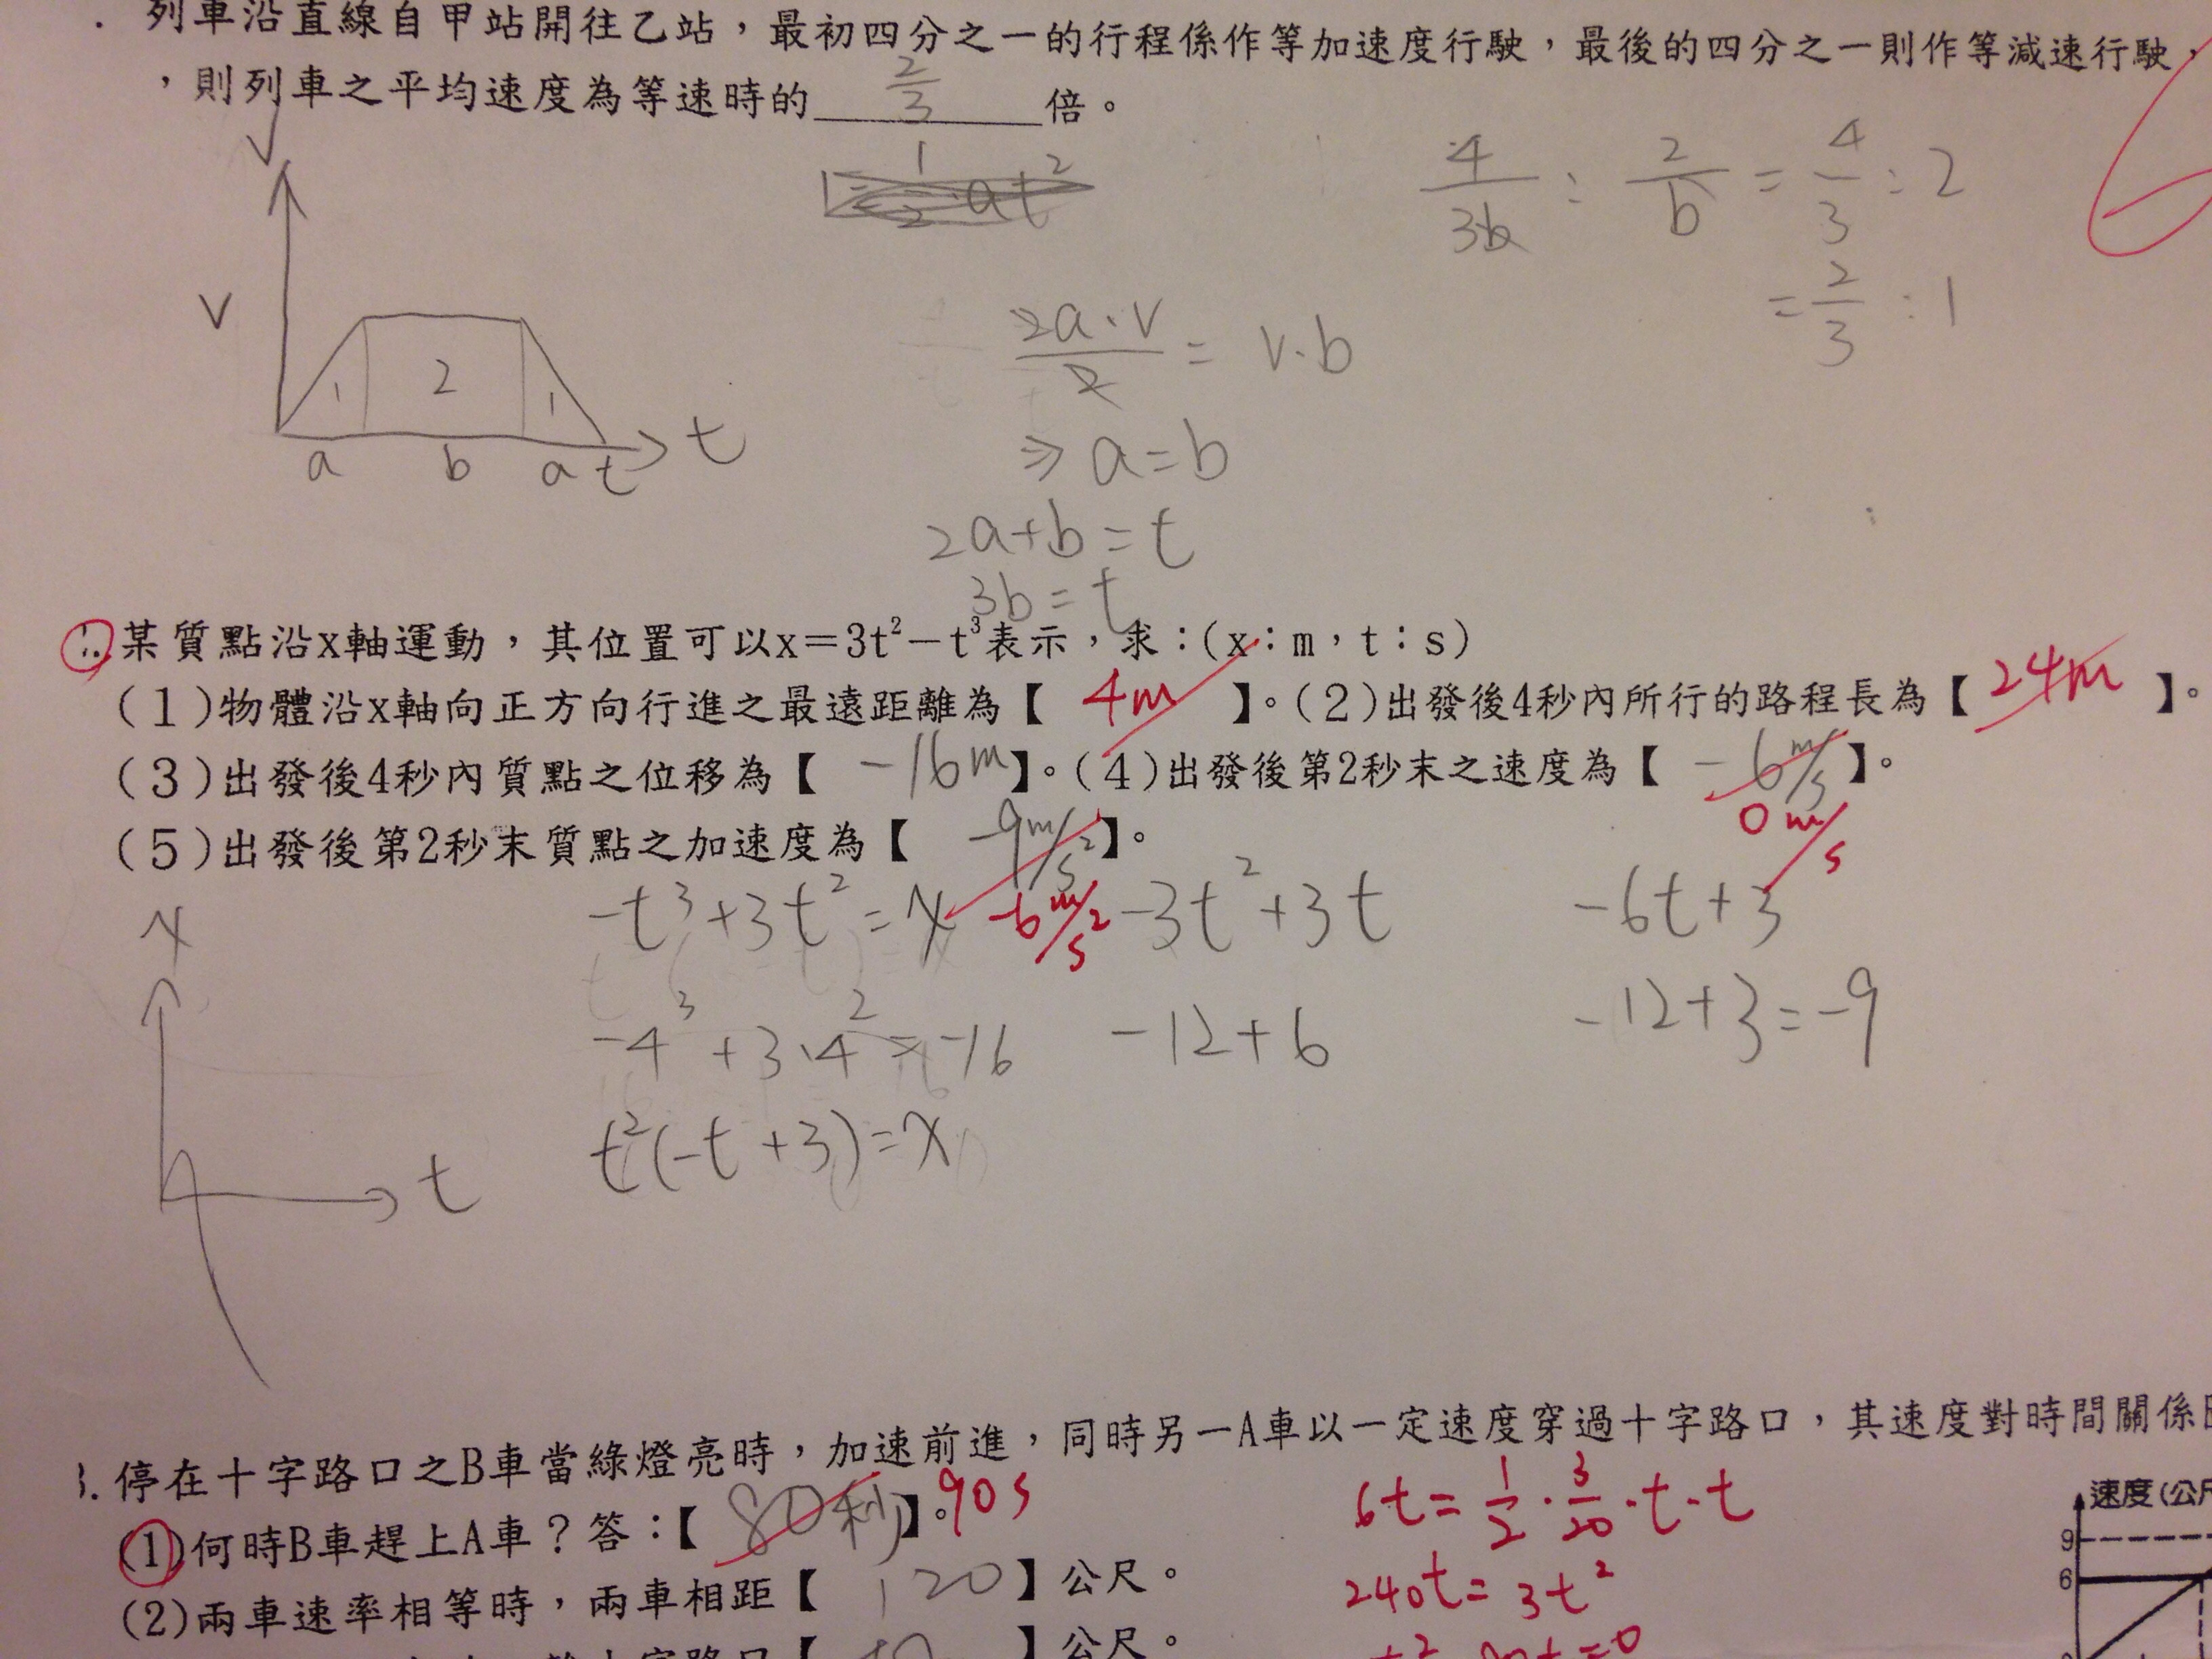 . 列車沿直線自甲站開往乙站，最初四分之一的行程係作等加速度行駛，最後的四分之一則作等減速行駛，
，則列車之平均速度為等速時的 2/3 倍。
V
v
1 2 1
a b a t
t
2a·v/2 = v·b
⇒ a=b
2a+b=t
3b=t
4/3b : 2/b = 4/3 : 2
= 2/3 : 1
某質點沿x軸運動，其位置可以x＝3t²－t³表示，求：(x：m，t：s)
(1)物體沿x軸向正方向行進之最遠距離為【 4m 】。(2)出發後4秒內所行的路程長為【 24m 】。
(3)出發後4秒內質點之位移為【 -16m 】。(4)出發後第2秒末之速度為【 -6m/s 】。
0 m/s
(5)出發後第2秒末質點之加速度為【 -9m/s² 】。
-6 m/s²
x
t
-t³+3t²=x
-3t²+3t
-6t+3
-4³+3·4²=-16
-12+6
-12+3=-9
t²(-t+3)=x
3.停在十字路口之B車當綠燈亮時，加速前進，同時另一A車以一定速度穿過十字路口，其速度對時間關係
(1)何時B車趕上A車？答：【 80秒 】。90s
(2)兩車速率相等時，兩車相距【 120 】公尺。
】公尺。
6t=1/2·3/20·t·t
240t=3t²
速度(公尺
9
6